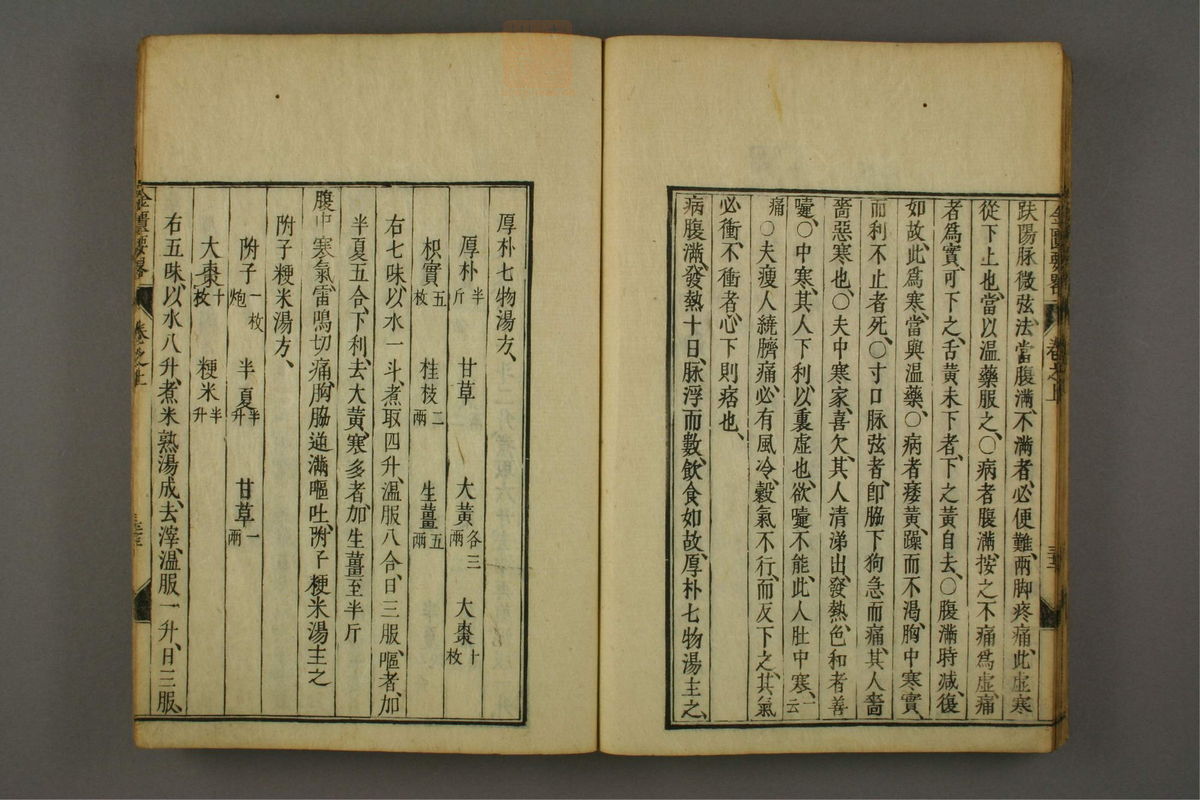 趺陽脉微弦法當腹滿、不滿者、必便難、兩脚疼痛、此虛寒
從下上也、當以温藥服之、〇病者腹滿、按之不痛爲虛、痛
者爲實、可下之、舌黄未下者、下之黄自去、〇腹滿時减、復
如故、此爲寒、當與温藥、〇病者痿黄、躁而不渴、胸中寒實、
而利不止者死、〇寸口脉弦者、卽脇下拘急而痛、其人嗇
嗇惡寒也、〇夫中寒家、喜欠、其人清涕出、發熱、色和者善
嚏、〇中寒、其人下利、以裏虛也、欲嚏不能、此人肚中寒、一云
痛〇夫瘦人繞臍痛、必有風冷、穀氣不行、而反下之、其氣
必衝、不衝者、心下則痞也、
病腹滿、發熱十日、脉浮而數、飲食如故、厚朴七物湯主之、
金匱要畧 卷之上
厚朴七物湯方、
厚朴半斤 甘草 大黄各三兩 大棗十枚
枳實五枚 桂枝二兩 生薑五兩
右七味、以水一斗、煮取四升、温服八合、日三服、嘔者、加
半夏五合、下利、去大黄、寒多者、加生薑至半斤
腹中寒氣、雷鳴切痛、胸脇逆滿、嘔吐、附子粳米湯主之
附子粳米湯方、
附子一枚炮 半夏半升 甘草一兩
大棗十枚 粳米半升
右五味、以水八升、煮米熟湯成、去滓、温服一升、日三服、
金匱要畧 卷之上